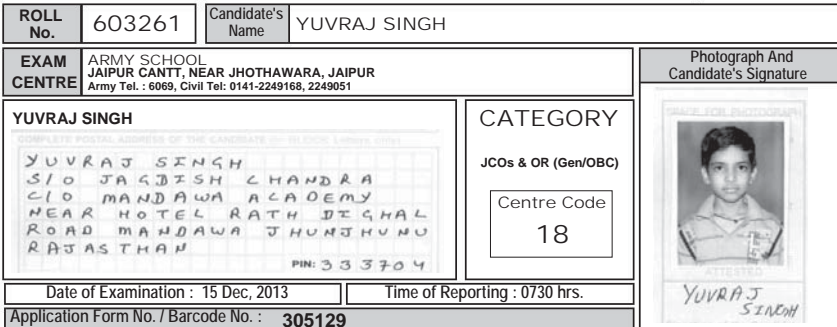 ROLL No. 603261 Candidate's Name YUVRAJ SINGH
EXAM CENTRE ARMY SCHOOL
JAIPUR CANTT, NEAR JHOTHAWARA, JAIPUR
Army Tel. : 6069, Civil Tel: 0141-2249168, 2249051
Photograph And
Candidate's Signature
YUVRAJ SINGH
COMPLETE POSTAL ADDRESS OF THE CANDIDATE (in BLOCK Letters only)
YUVRAJ SINGH
S/O JAGDISH CHANDRA
C/O MANDAWA ACADEMY
NEAR HOTEL RATH DIGHAL
ROAD MANDAWA JHUNJHUNU
RAJASTHAN
PIN: 333704
CATEGORY
JCOs & OR (Gen/OBC)
Centre Code
18
SPACE FOR PHOTOGRAPH
ATTESTED
YUVRAJ
SINGH
Date of Examination : 15 Dec, 2013 Time of Reporting : 0730 hrs.
Application Form No. / Barcode No. : 305129